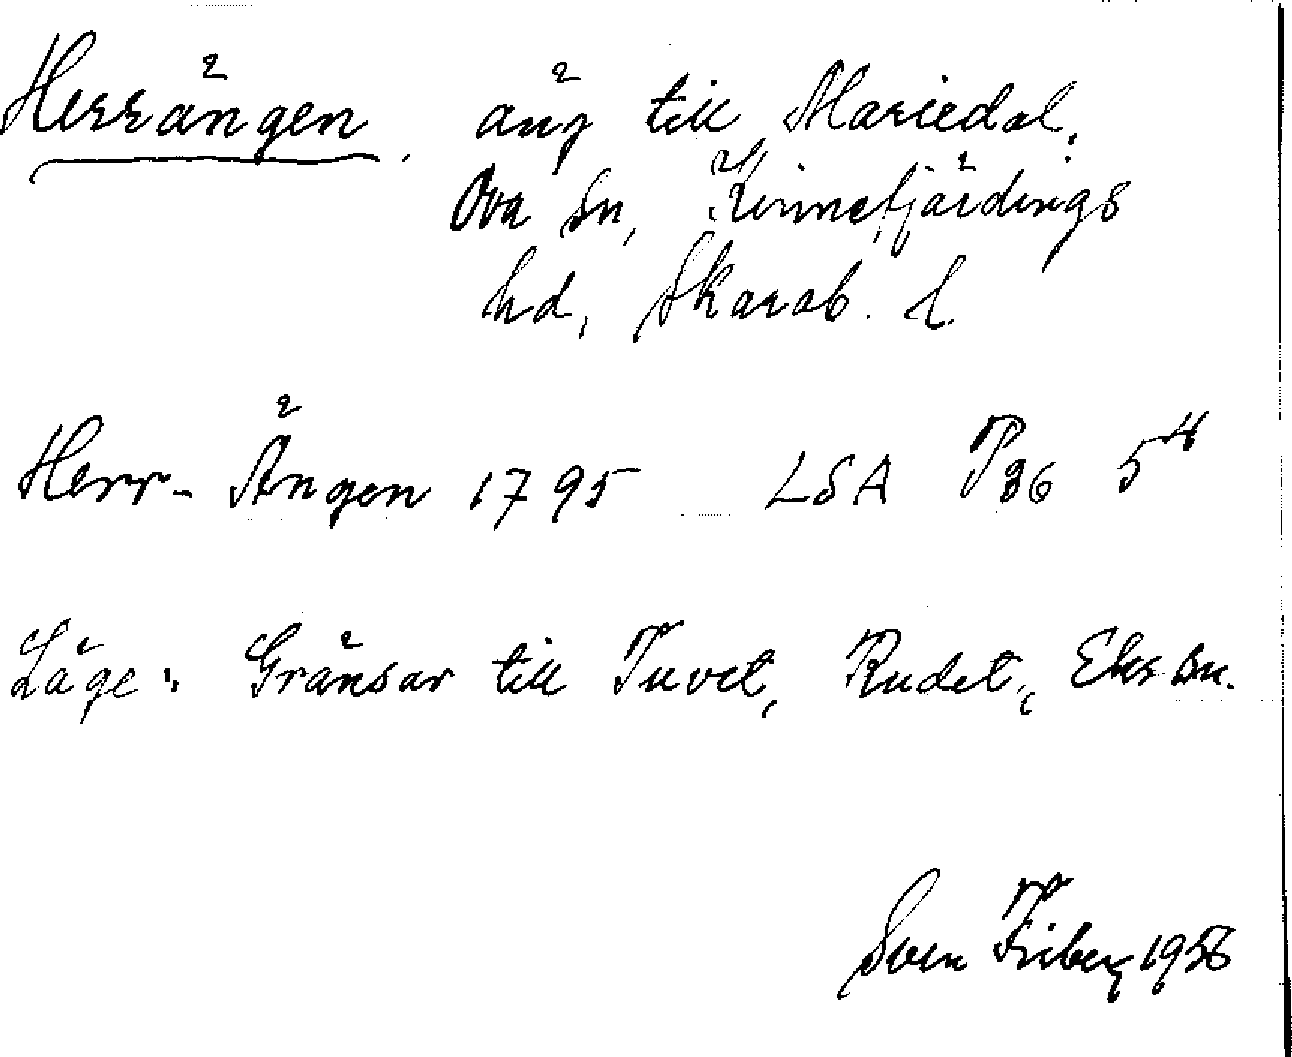 Herrängen, äng till Mariedal,
Ova Sn, Kinnefjärdings
hd, Skarab. l.
Herr-Ängen 1795 LSA P36 5⁴
Läge: Gränsar till Tuvet, Rudet, Eks sn.
Sven Friberg 1956